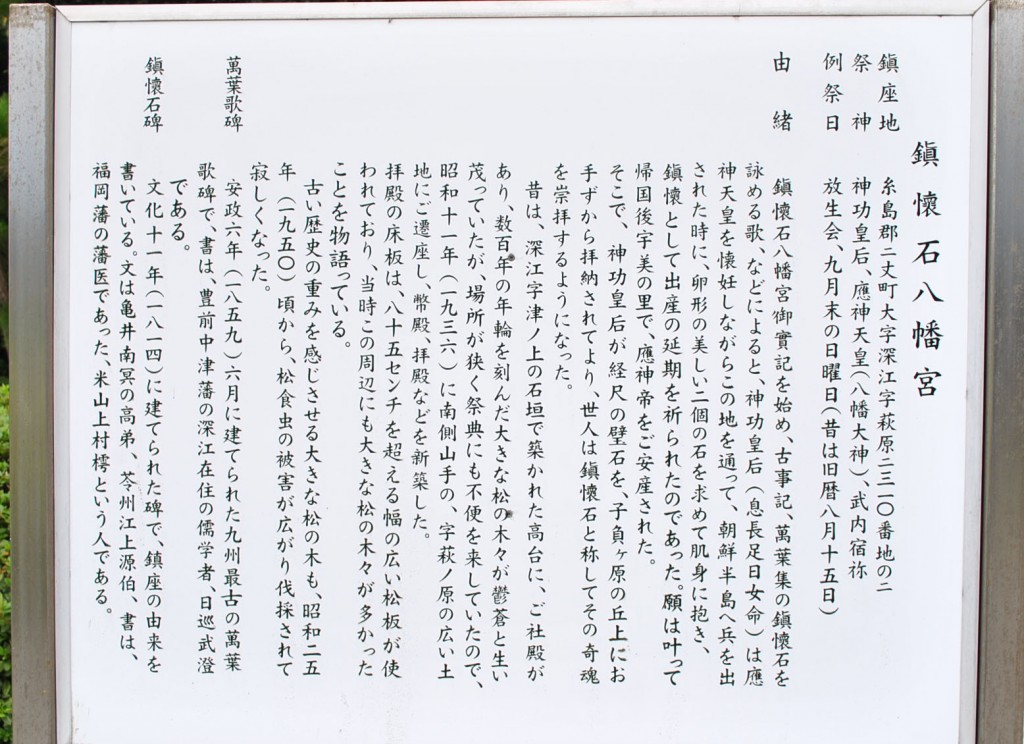 鎭懷石八幡宮
鎭座地　糸島郡二丈町大字深江字萩原二三一〇番地の二
祭神　神功皇后、應神天皇(八幡大神)、武内宿祢
例祭日　放生会、九月末の日曜日(昔は旧暦八月十五日)
由緒
鎭懷石八幡宮御實記を始め、古事記、萬葉集の鎭懷石を
詠める歌、などによると、神功皇后(息長足日女命)は應
神天皇を懷妊しながらこの地を通って、朝鮮半島へ兵を出
された時に、卵形の美しい二個の石を求めて肌身に抱き、
鎭懷として出産の延期を祈られたのであった。願は叶って
帰国後宇美の里で、應神帝をご安産された。
そこで、神功皇后が径尺の璧石を、子負ヶ原の丘上にお
手ずから拝納されてより、世人は鎭懷石と称してその奇魂
を崇拝するようになった。
昔は、深江字津ノ上の石垣で築かれた高台に、ご社殿が
あり、数百年の年輪を刻んだ大きな松の木々が鬱蒼と生い
茂っていたが、場所が狭く祭典にも不便を来していたので、
昭和十一年(一九三六)に南側山手の、字萩ノ原の広い土
地にご遷座し、幣殿、拝殿などを新築した。
拝殿の床板は、八十五センチを超える幅の広い松板が使
われており、当時この周辺にも大きな松の木々が多かった
ことを物語っている。
古い歴史の重みを感じさせる大きな松の木も、昭和二五
年(一九五〇)頃から、松食虫の被害が広がり伐採されて
寂しくなった。
萬葉歌碑　安政六年(一八五九)六月に建てられた九州最古の萬葉
歌碑で、書は、豊前中津藩の深江在住の儒学者、日巡武澄
である。
鎭懷石碑　文化十一年(一八一四)に建てられた碑で、鎮座の由来を
書いている。文は亀井南冥の高弟、苓州江上源伯、書は、
福岡藩の藩医であった、米山上村樗という人である。